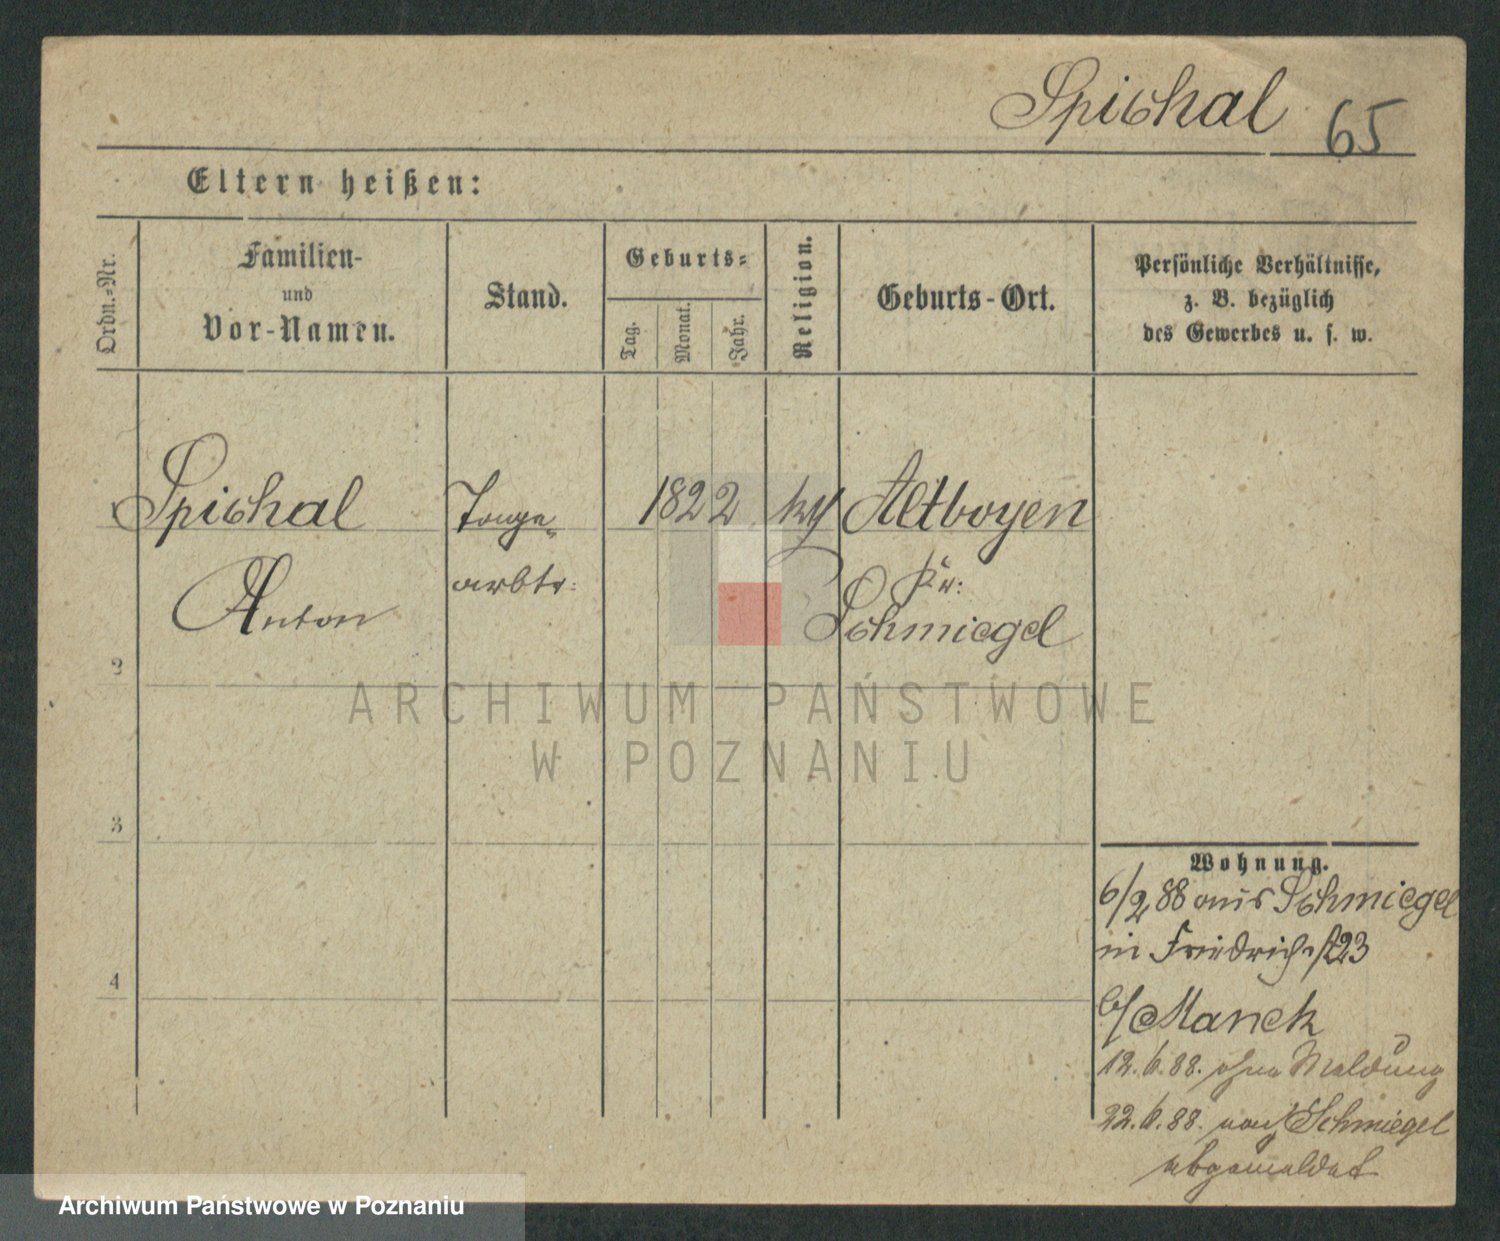 Spichal 65
Eltern heißen:
Ordn.-Nr.
Familien-
und
Vor-Namen.
Stand.
Geburts-
Tag.
Monat.
Jahr.
Religion.
Geburts-Ort.
Persönliche Verhältnisse,
z. B. bezüglich
des Gewerbes u. s. w.
1 Spichal Tage- 1822 Altboyen
Anton arbtr: Kr:
Schmiegel
2
3
4
Wohnung.
6/2 88 aus Schmiegel
in Friedrichst 23
b/ Manck
12.6.88. ohne Meldung
22.6.88. nach Schmiegel
abgemeldet
ARCHIWUM PAŃSTWOWE
W POZNANIU
Archiwum Państwowe w Poznaniu